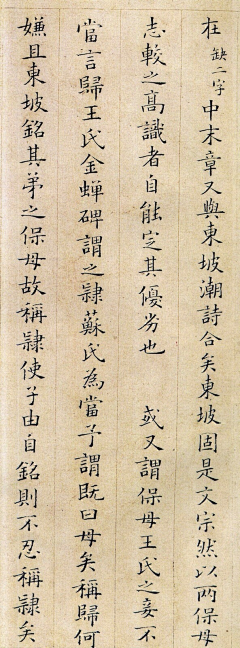 在缺二字中末章又與東坡潮詩合矣東坡固是文宗然以兩保母
志較之高識者自能定其優劣也　或又謂保母王氏之妾不
當言歸王氏金蟬碑謂之隸蘇氏為當予謂既曰母矣稱歸何
嫌且東坡銘其弟之保母故稱隸使子由自銘則不忍稱隸矣